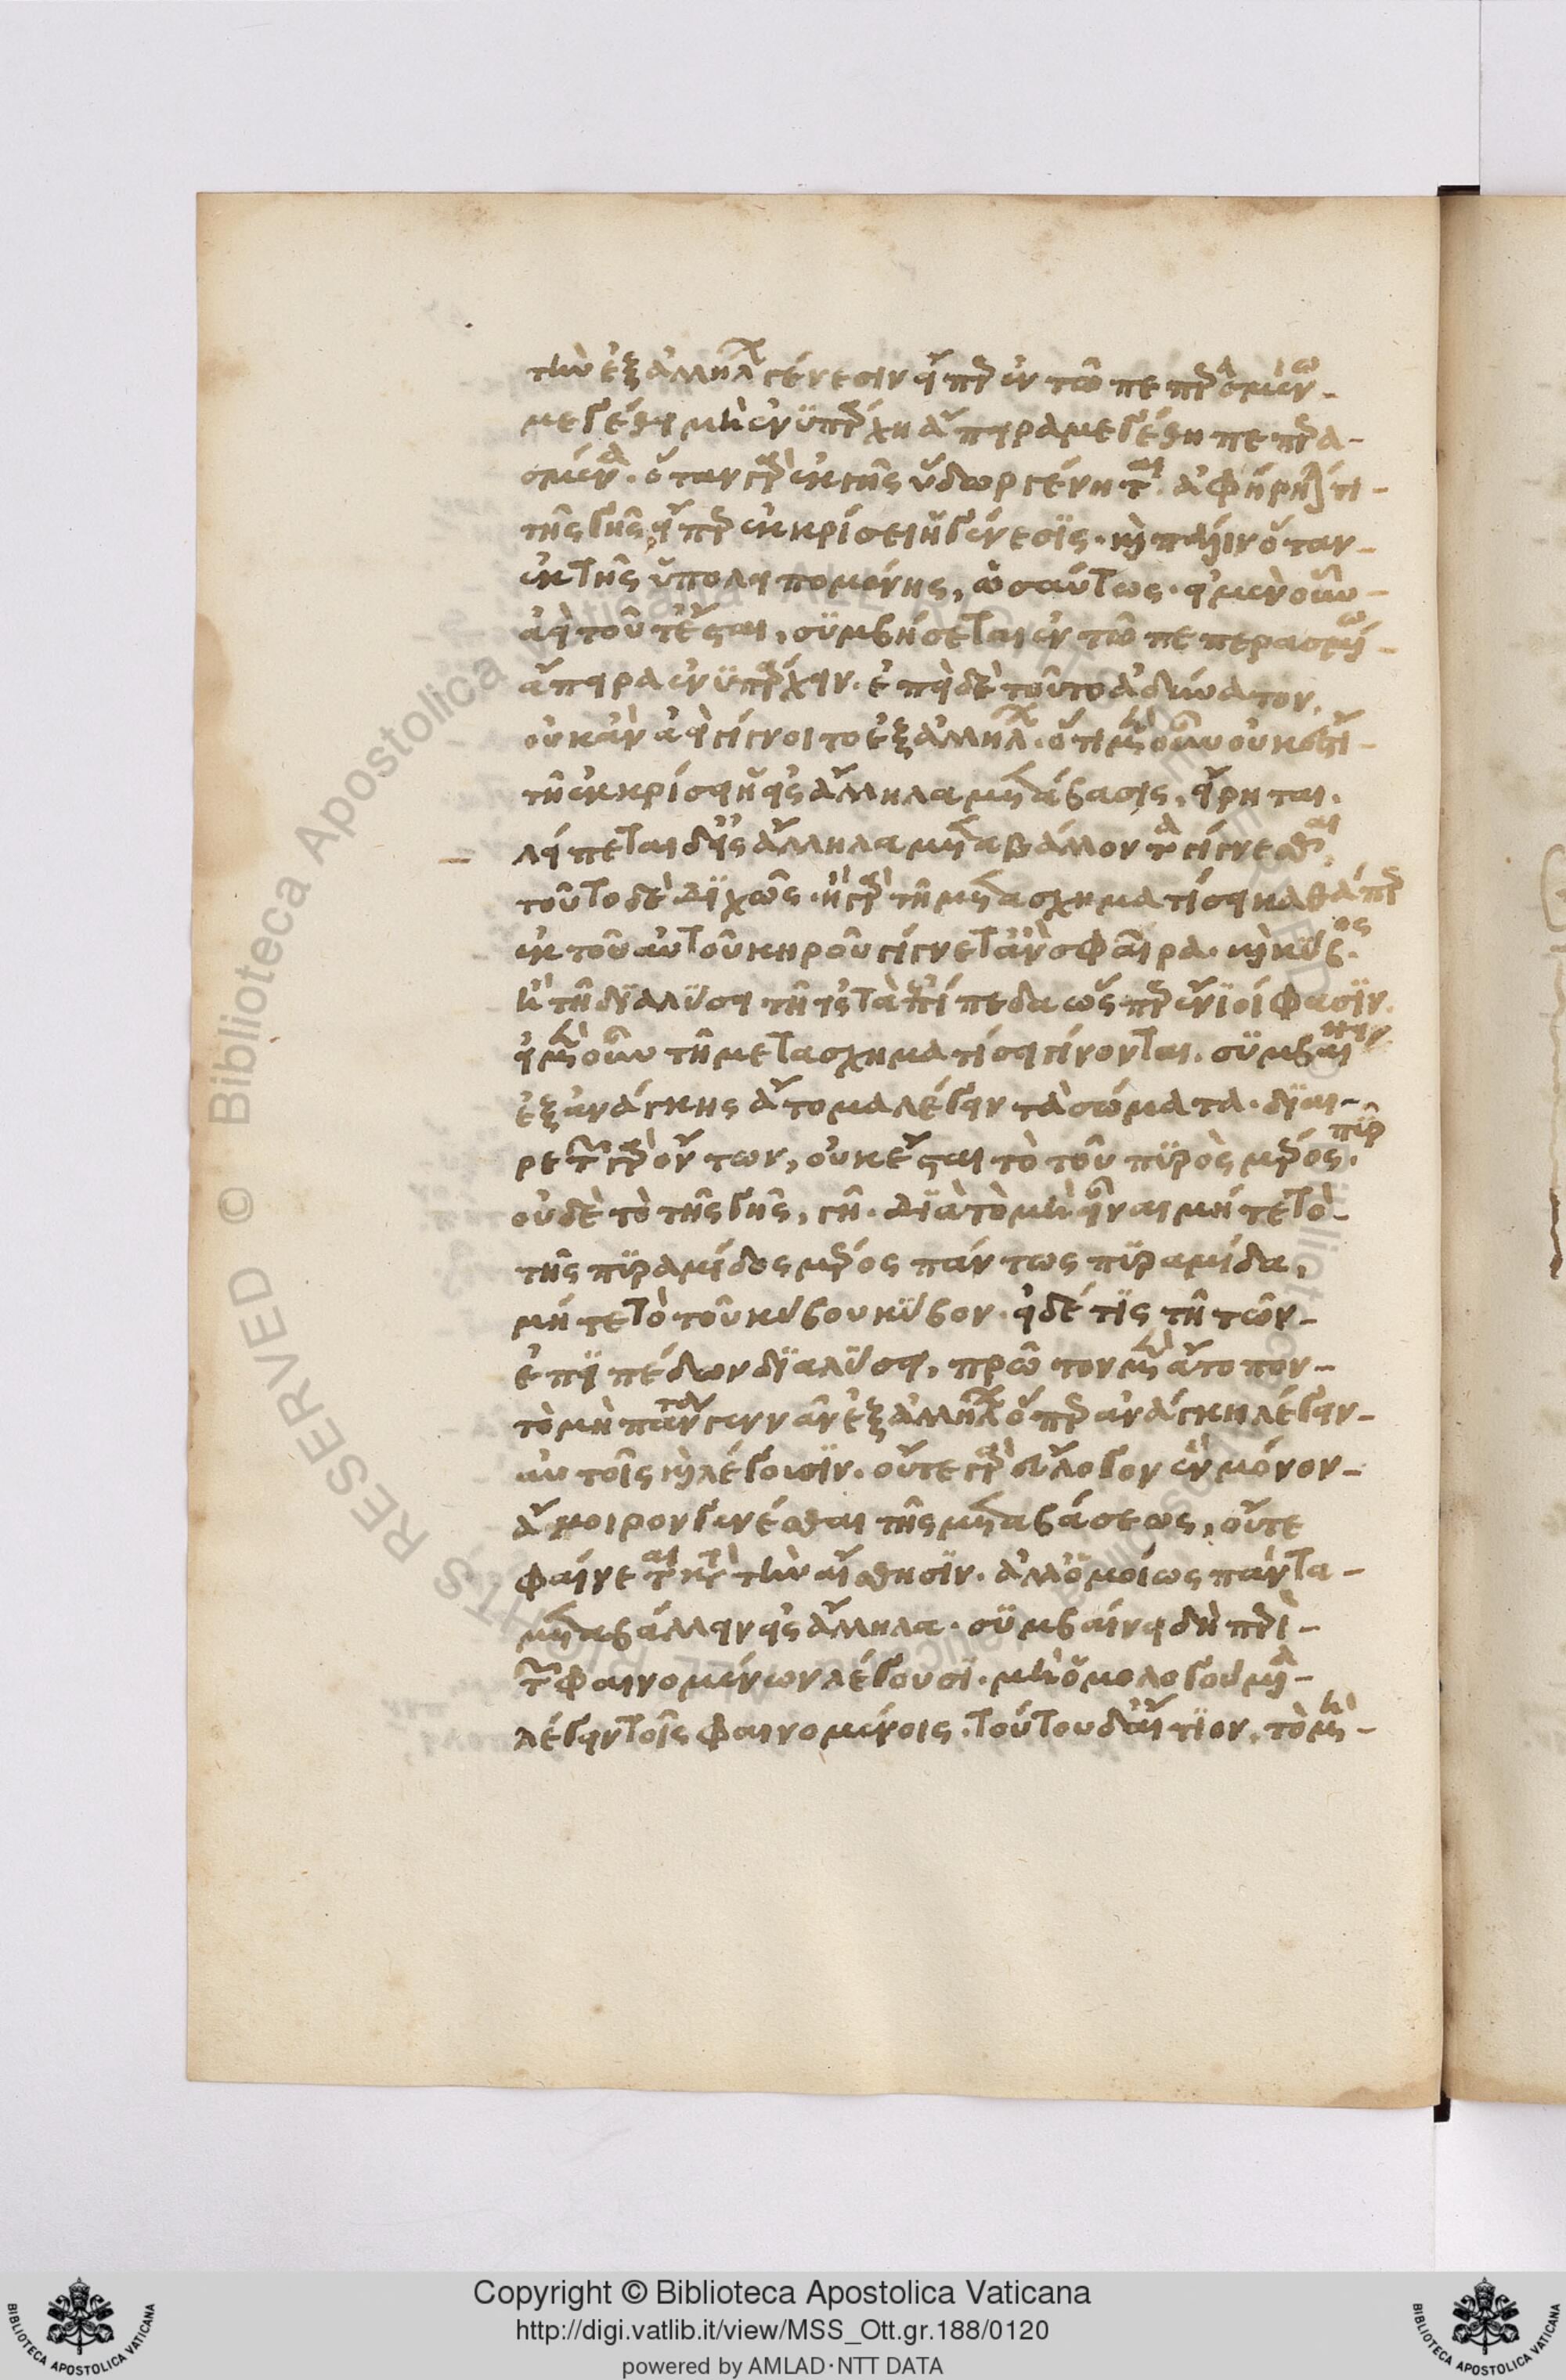 τὴν ἐξ ἀλλήλων γένεσιν εἴπερ ἐν τῶ πεπερασμένω
μεγέθει μὴ ἐνϋπάρχη ἄπειρα μεγέθη πεπερα
σμένα. ὅταν γὰρ ἐκ γῆς ὕδωρ γένηται. ἀφήρηταί τι
τῆς γῆς, εἴπερ ἐκκρίσει ἡ γένεσϊς. καὶ πάλιν ὅταν
ἐκ τῆς ὑπολειπομένης, ὡσαύτως. εἰ μὲν οὖν
ἀεὶ τοῦτ' ἔσται, σϋμβήσεται ἐν τῶ πεπερασμένω
ἄπειρα ἐνϋπάρχειν. ἐπεὶ δὲ τοῦτο ἀδύνατον,
οὐκ ἂν ἀεὶ γίγνοιτο ἐξ ἀλλήλων. ὅτι μὲν οὖν οὐκ ἔστι
τῆ ἐκκρίσει ἡ εἰς ἄλληλα μετάβασις, εἴρηται.
λείπεται δ' εἰς ἄλληλα μεταβάλλοντα γίγνεσθαι,
τοῦτο δὲ δϊχῶς. ἢ γὰρ τῆ μετασχηματίσει καθάπερ
ἐκ τοῦ αὐτοῦ κηροῦ γίγνετ' ἂν σφαῖρα. καὶ κύβος.
ἢ τῆ δϊαλύσει τῆ εἰς τὰ ἐπίπεδα ὥσπερ ἔνϊοί φασϊν.
εἰ μὲν οὖν τῆ μετασχηματίσει γίνονται. σϋμβαίνει
ἐξ ἀνάγκης ἄτομα λέγειν τὰ σώματα. δϊαι
ρετῶν γὰρ ὄντων, οὐκ ἔσται τὸ τοῦ πϋρὸς μέρος πῦρ.
οὐδὲ τὸ τῆς γῆς, γῆ. δϊὰ τὸ μὴ εἶναι μήτε τὸ
τῆς πϋραμίδος μέρος πάντως πϋραμίδα,
μήτε τὸ τοῦ κύβου κύβον. εἰ δέ τϊς τῆ τῶν
ἐπϊπέδων δϊαλύσει, πρῶτον μὲν ἄτοπον
τὸ μὴ πάντα γεννᾶν ἐξ ἀλλήλων ὅπερ ἀνάγκη λέγειν
αὐτοῖς καὶ λέγουσϊν. οὔτε γὰρ εὔλογον ἓν μόνον
ἄμοιρον γενέσθαι τῆς μεταβάσεως, οὔτε
φαίνεται κατὰ τὴν αἴσθησϊν. ἀλλ' ὁμοίως πάντα
μεταβάλλειν εἰς ἄλληλα. σϋμβαίνει δὴ περὶ
τῶν φαινομένων λέγουσϊ. μὴ ὁμολογούμενα
λέγειν τοῖς φαινομένοις. τούτου δ' αἴτϊον, τὸ μὴ
Copyright © Biblioteca Apostolica Vaticana
http://digi.vatlib.it/view/MSS_Ott.gr.188/0120
powered by AMLAD·NTT DATA